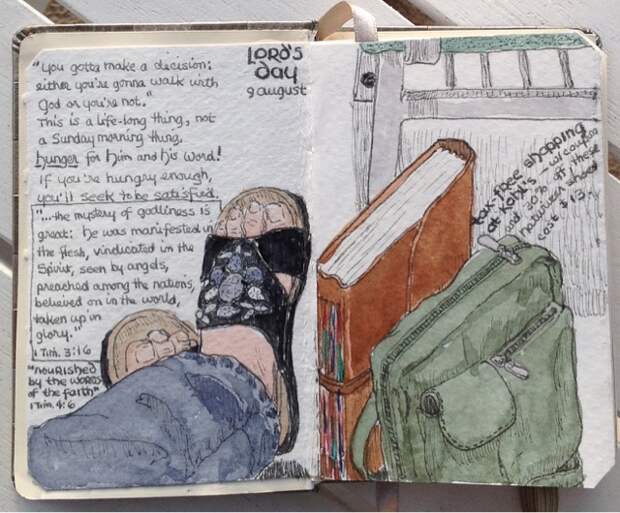 "you gotta make a decision:
either you're gonna walk with
God or you're not."
This is a life-long thing, not
a Sunday morning thing.
hunger for Him and His Word!
If you're hungry enough,
you'll seek to be satisfied.
"...the mystery of godliness is
great: he was manifested in
the flesh, vindicated in the
Spirit, seen by angels,
preached among the nations,
believed on in the world,
taken up in
glory."
1 Tim. 3:16
"nourished
by the words
of the faith"
1 Tim. 4:6
LORD'S
day
9 august
tax-free shopping
at York's - w/ coupon
and 30% off these
shoes
cost $13.